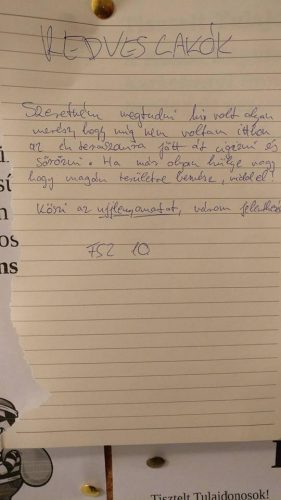 KEDVES LAKÓK
Szeretném megtudni ki volt olyan
merész, hogy míg nem voltam itthon
az én teraszomra jött át cigizni és
sörözni. Ha már olyan hülye vagy
hogy magán területre bemész, vidd el!
Köszi az ujjlenyomatot, várom jelentkezé
FSZ 10
ű.
sí
n
os
ns
Tisztelt Tulajdonosok!